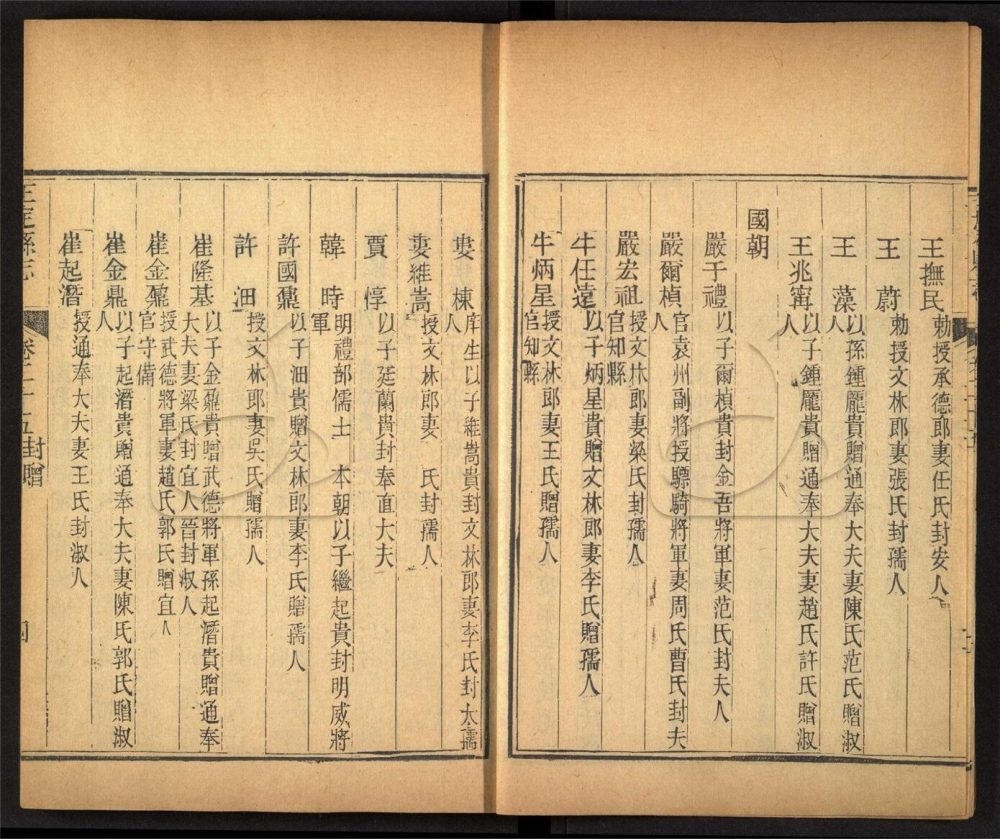 王撫民 勅授承德郎妻任氏封安人
王 蔚 勅授文林郎妻張氏封孺人
王 藻 以孫鍾龐貴贈通奉大夫妻陳氏范氏贈淑人
王兆甯 以子鍾龐貴贈通奉大夫妻趙氏許氏贈淑人
國朝
嚴于禮 以子爾楨貴封金吾將軍妻范氏封夫人
嚴爾楨 官袁州副將授驃騎將軍妻周氏曹氏封夫人
嚴宏祖 授文林郎妻梁氏封孺人
官知縣
牛任遠 以子炳星貴贈文林郎妻李氏贈孺人
牛炳星 授文林郎妻王氏贈孺人
官知縣
婁 棟 庠生以子維嵩貴封文林郎妻李氏封太孺人
婁維嵩 授文林郎妻 氏封孺人
賈 惇 以子廷蘭貴封奉直大夫
韓 時 明禮部儒士 本朝以子繼起貴封明威將軍
許國鼐 以子沺貴贈文林郎妻李氏贈孺人
許 沺 授文林郎妻吳氏贈孺人
崔隆基 以子金鼐貴贈武德將軍孫起潛貴贈通奉
大夫妻梁氏封宜人晉封淑人
崔金鼐 授武德將軍妻趙氏郭氏贈宜人
官守備
崔金鼎 以子起潛貴贈通奉大夫妻陳氏郭氏贈淑人
崔起潛 授通奉大夫妻王氏封淑人
縣志 卷二十五 封贈 四